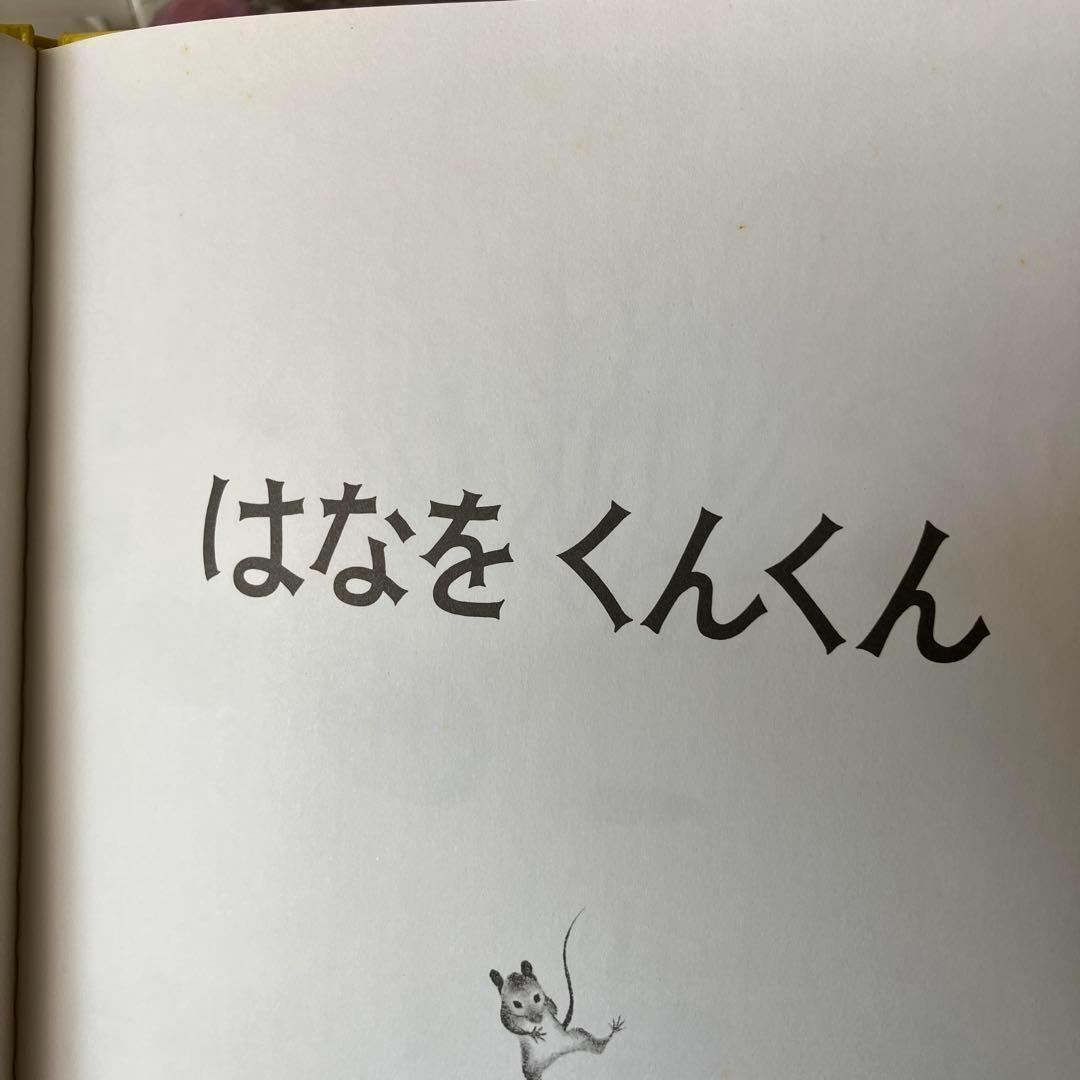 はなを くんくん